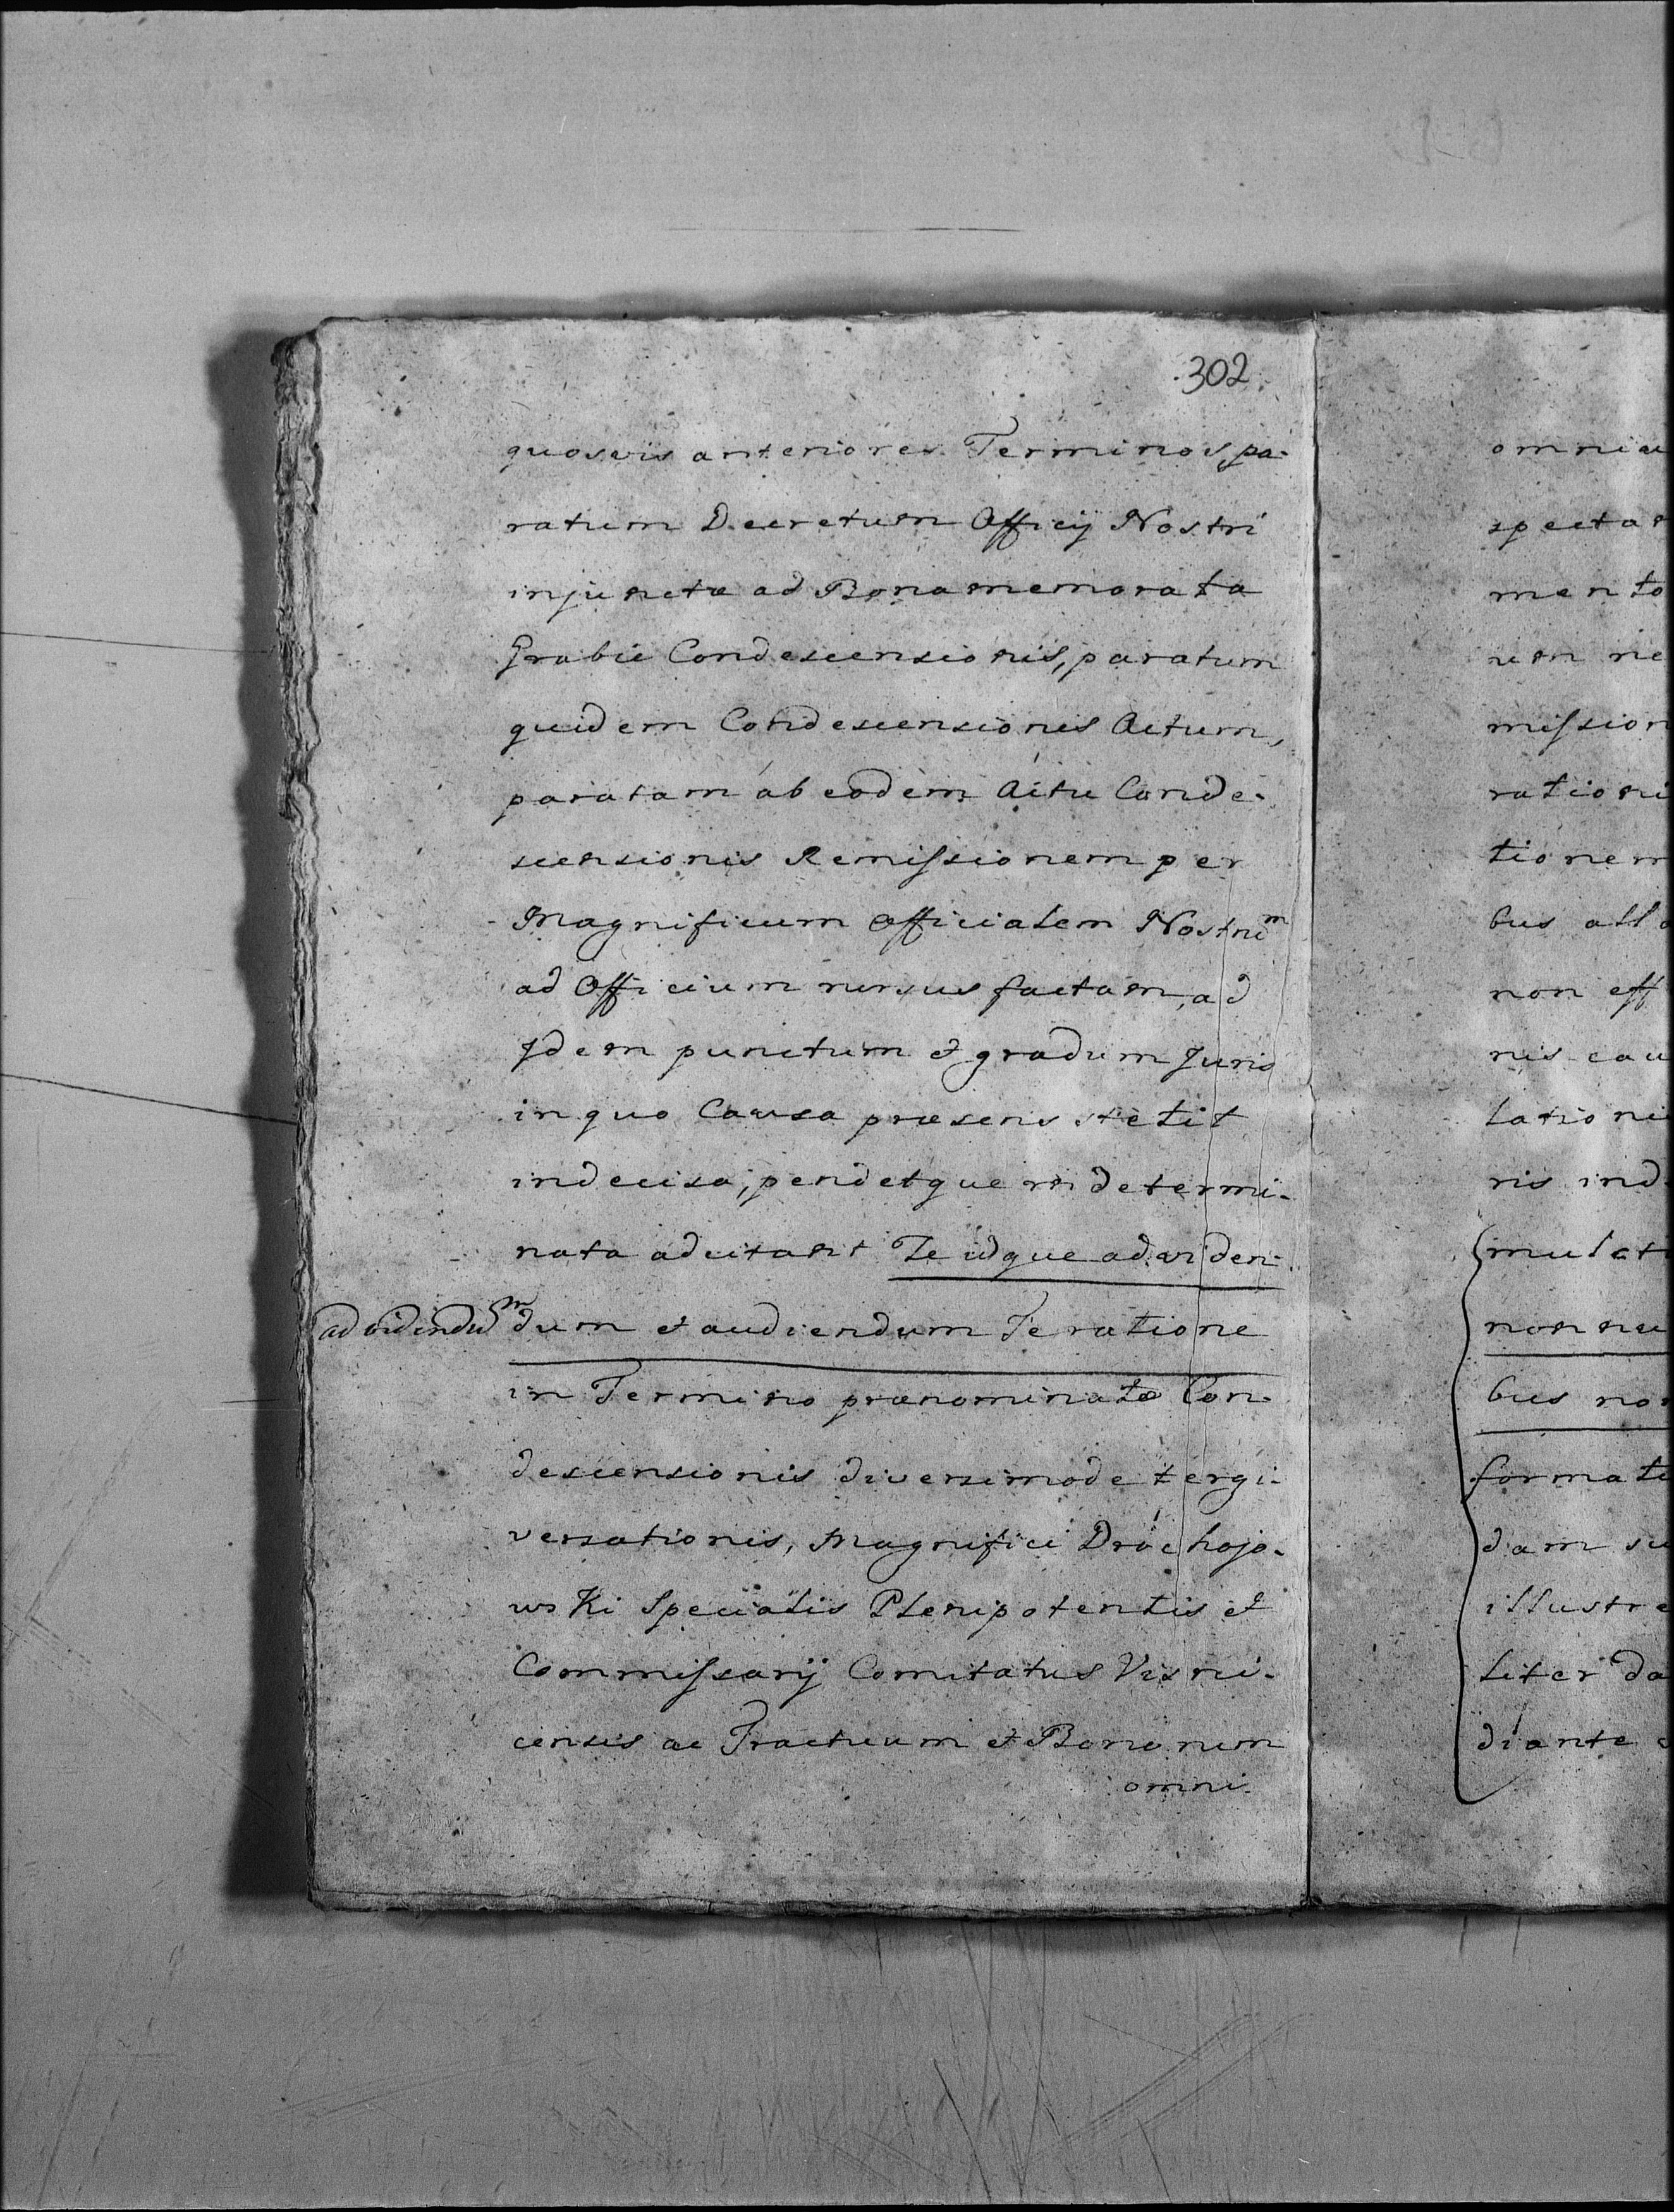 302
quosvis anteriores Terminos, pa-
ratum Decretum Officij Nostri
injunctæ ad Bona memorata
Grabie Condescensionis, paratum
quidem Condescensionis Actum,
paratam ab eodem Actu Conde-
scensionis Remissionem per
Magnificum Officialem Nostru^m
ad Officium rursus factam, ad
Idem punctum et gradum Juris
in quo Causa præsens stetit
indecisa, pendetque indetermi-
nata adcitant Te idque ad viden-
ad videndu^m dum et audiendum Te ratione
in Termino prænominatæ Con-
descensionis diversimode tergi-
versationis, Magnifici Drochojo-
wski Specialis Plenipotentis et
Commissarij Comitatus Visni-
censis ac Tractuum et Bonorum
omni-
omniu
spectan
mento
mission
rationi
tionem
bus all
non eff
nis cau
lationi
ris ind
mulct
non nu
bus non
formati
dam su
illustre
liter da
diante